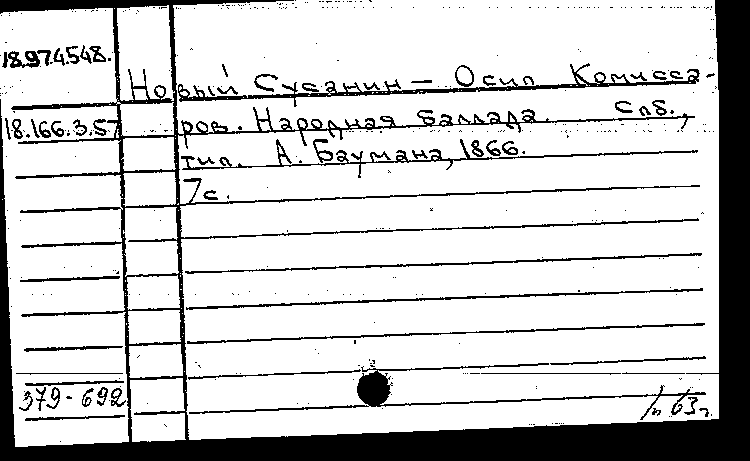 18.974.548.
Новый Сусанин — Осип Комисса-
18.166.3.57
ров. Народная баллада. Спб.,
тип. А. Баумана, 1866.
7с.
379-692
63г.